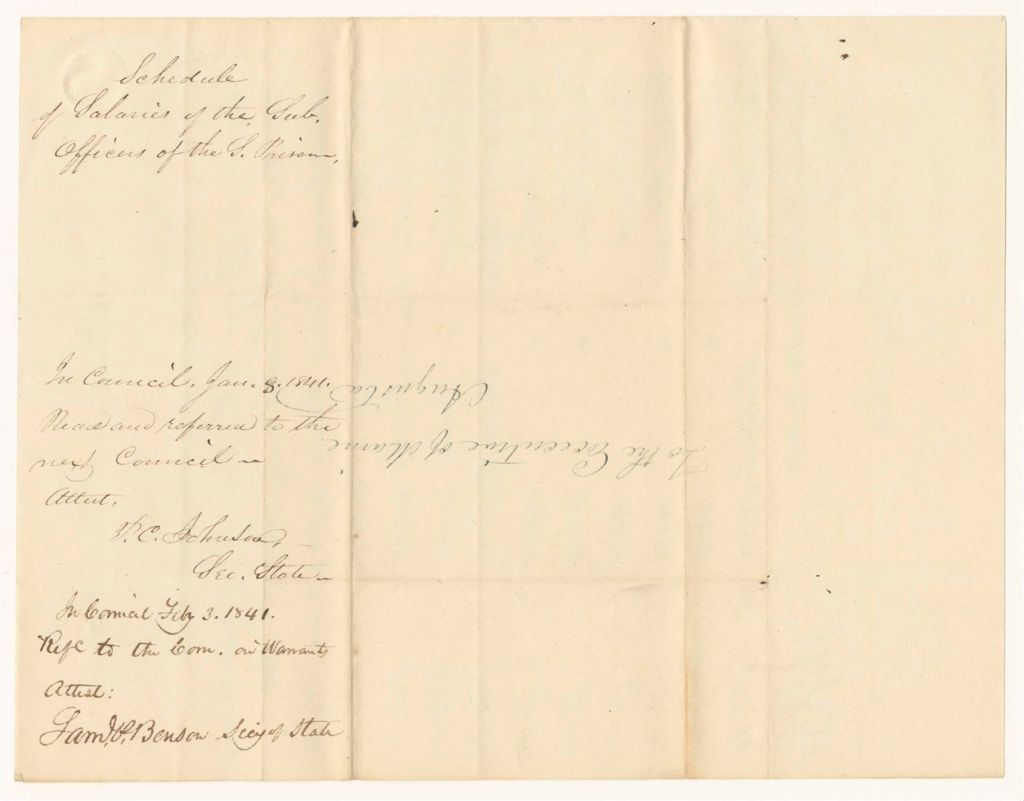 Schedule
of Salaries of the Sub.
Officers of the S. Prison,
In Council, Jan. 8. 1841.
Read and referred to the
next Council
Attest,
P. C. Johnson,
Sec. State
In Council Feb 3. 1841.
Refd to the Com. on Warrants
Attest:
Saml. P. Benson Secy of State
To the Executive of Maine
Augusta